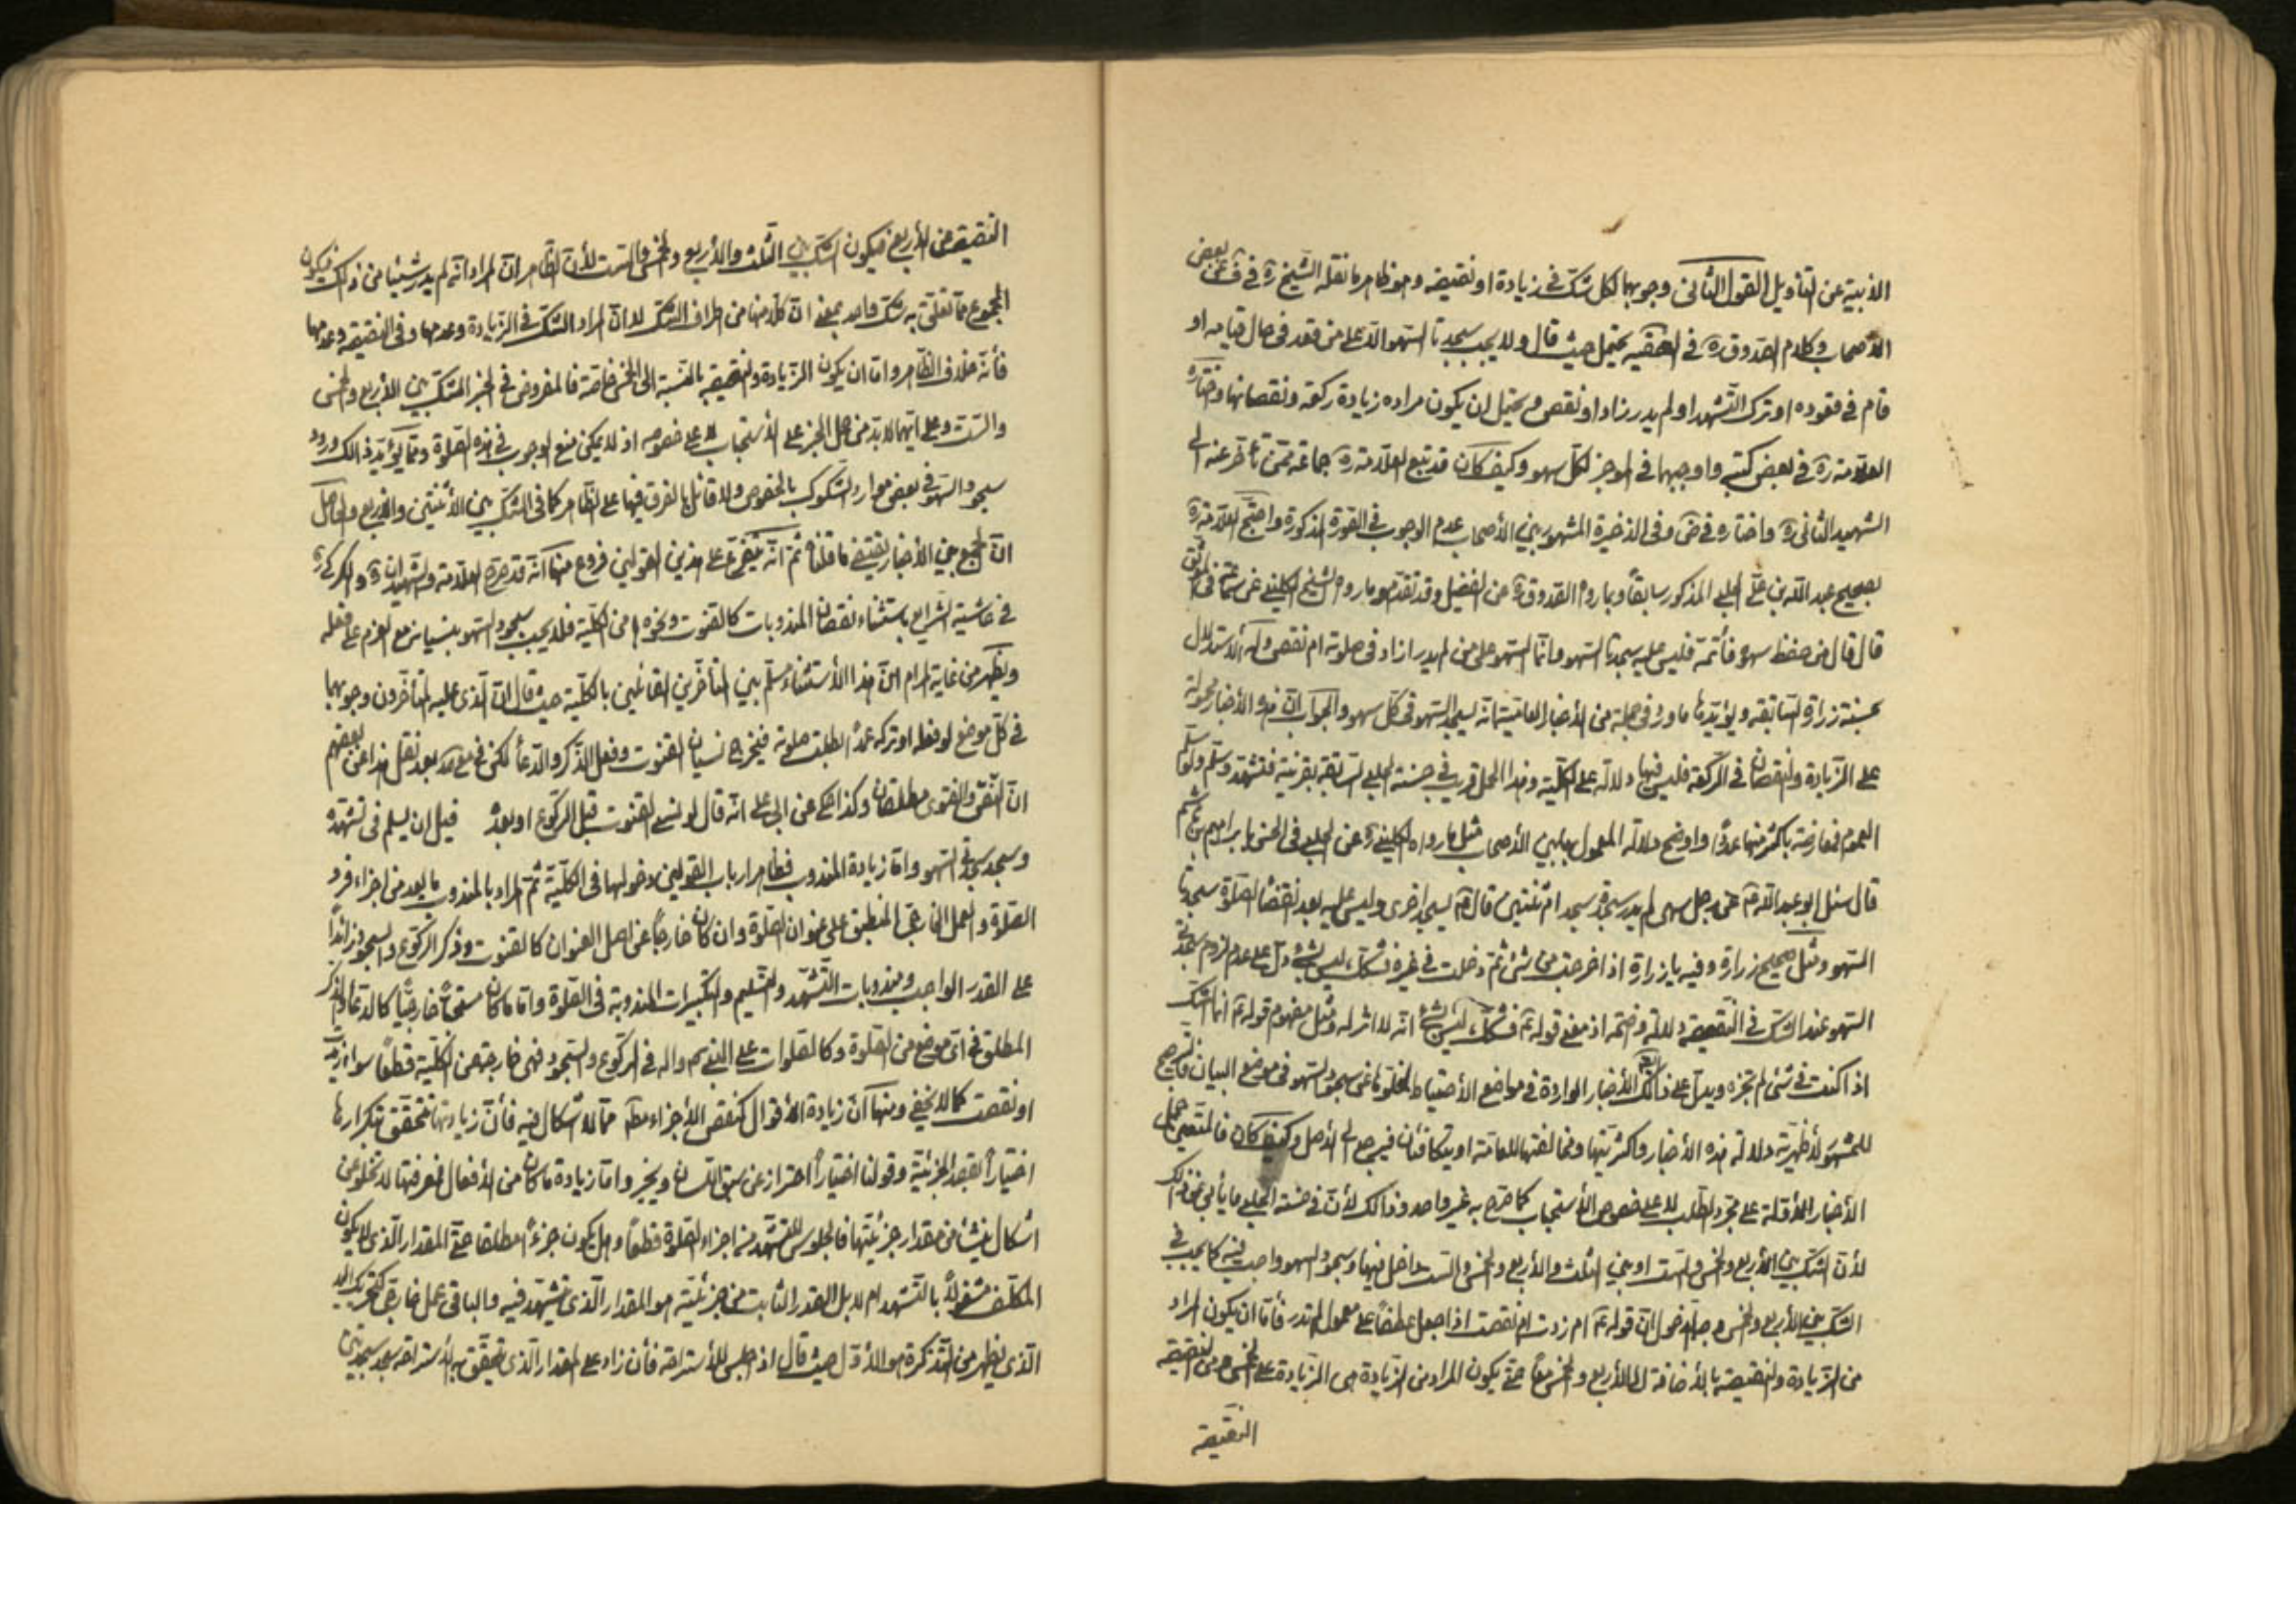 الأبية عن التأويل القول الثاني وجوبهما لكل شك في زيادة او نقيصة وهو ظاهر ما نقله الشيخ ره في ف عن بعض
الأصحاب وكلام الصدوق ره في الفقيه يحتمل حيث قال ولا يجب سجدتا السهو الا على من قعد في حال قيامه او
قام في قعوده او ترك التشهد او لم يدر زاد او نقص ويحتمل ان يكون مراده زيادة ركعة ونقصانها واختاره
العلامة ره في بعض كتبه واوجبهما في الموجز لكل سهو وكيف كان قد تبع العلامة ره جماعة ممن تأخر عنه
الشهيد الثاني ره واختاره في ض وفي الذخيرة المشهور بين الأصحاب عدم الوجوب في الصورة المذكورة واحتج العلامة ره
بصحيح عبد الله بن علي الحلبي المذكور سابقاً وبما رواه الصدوق ره عن الفضيل وقد تقدم وما رواه الشيخ الكليني عن سماعة في الموثق
قال قال من حفظ سهوه فأتمه فليس عليه سجدتا السهو وانما السهو على من لم يدر ازاد في صلوته ام نقص وله الاستدلال
بحسنة زرارة السابقة ويؤيدها ما ورد في جملة من الأخبار العامية انه يسجد السهو في كل سهو والجواب ان هذه الأخبار محمولة
على الزيادة والنقصان في الركعة فليس فيها دلالة على الكلية وهذا الحمل قريب في حسنة الحلبي السابقة بقرينة فتشهد وسلم ولو سلم
العموم فمعارضة باكثر منها عدداً واوضح دلالة المعمول بها بين الأصحاب مثل ما رواه الكليني ره عن الحلبي في الحسن بابراهيم بن هاشم
قال سئل ابو عبد الله ع عن رجل سهى لم يدر سجدة سجد ام ثنتين قال ع يسجد اخرى وليس عليه بعد انقضاء الصلوة سجدتا
السهو ومثل صحيح زرارة وفيه يا زرارة اذا خرجت من شئ ثم دخلت في غيره فشكك ليس بشئ دل على عدم لزوم سجدتي
السهو عند الشك في النقيصة دلالة واضحة اذ معنى قوله ع فشكك ليس بشئ انه لا اثر له ومثل مفهوم قوله ع انما الشك
اذا كنت في شئ لم تجزه ويدل على ذلك ايضا الأخبار الواردة في مواضع الأحتياط لخلوها عن سجود السهو في موضع البيان فالترجيح
للمشهور لأظهرية دلالة هذه الأخبار واكثريتها ومخالفتها للعامة او يتكافئان فيرجع الى الأصل وكيف كان فالمتعين حمل
الأخبار الأولة على مجرد الطلب لا على خصوص الأستحباب كما صرح به غير واحد وذلك لأن في حسنة الحلبي ما يأبى عن ذلك
لأن الشك بين الأربع والخمس والست او بين الثلث والأربع والخمس والست داخل فيها وسجود السهو واجب فيه كما يجب في
الشك بين الأربع والخمس وجه الدخول ان قوله ع ام زدت ام نقصت اذا جعل عطفاً على معمول لم تدر فأما ان يكون المراد
من الزيادة والنقيصة بالأضافة الى الأربع والخمس معاً حتى يكون المراد من الزيادة هي الزيادة على الخمس ومن النقيصة
النقيصة
النقيصة من الأربع فيكون الشك بين الثلث والأربع والخمس والست لأن الظاهر ان المراد انه لم يدر شيئا من ذلك فيكون
المجموع مما تعلق به شك واحد بمعنى ان كلا منها من اطراف الشك لا ان المراد الشك في الزيادة وعدمها وفي النقيصة وعدمها
فأنه خلاف الظاهر واما ان يكون الزيادة والنقيصة بالنسبة الى الخمس خاصة فالمفروض في الخبر الشك بين الأربع والخمس
والست وعلى ايهما لا بد من حمل الخبر على الأستحباب لا على خصوصه اذ لا يمكن منع الوجوب في هذه الصلوة ومما يؤيد ذلك ورود
سجود السهو في بعض موارد الشكوك بالخصوص ولا قائل بالفرق فيها على الظاهر كما في الشك بين الأثنتين والأربع والحاصل
ان الجمع بين الأخبار يقتضي ما قلنا ثم انه يتفرع على هذين القولين فروع منها انه قد صرح العلامة والشهيدان ره والكركي ره
في حاشية الشرايع باستثناء نقصان المندوبات كالقنوت ونحوه من الكلية فلا يجب سجود السهو بنسيانه مع العزم على فعله
ويظهر من غاية المرام ان هذا الأستثناء مسلم بين المتأخرين القائلين بالكلية حيث قال ان الذي عليه المتأخرون وجوبهما
في كل موضع لو فعله او تركه عمداً بطلت صلوته فيخرج نسيان القنوت وفعل الذكر والدعأ لكن في مع صد بعد نقل هذا عن بعضهم
ان النص والفتوى مطلقان وكذا حكي عن ابي علي انه قال لو نسي القنوت قبل الركوع او بعده قبل ان يسلم في تشهده
وسجد سجدتي السهو واما زيادة المندوب فظاهر ارباب القولين دخولها في الكلية ثم المراد بالمندوب ما يعد من اجزاء فرد
الصلوة والعمل الخارجي المنطبق على عنوان الصلوة وان كان خارجاً عن اصل العنوان كالقنوت وذكر الركوع والسجود زائداً
على القدر الواجب ومندوبات التشهد والتسليم والتكبيرات المندوبة في الصلوة واما ما كان مستحباً خارجياً كالدعاء والذكر
المطلق في اى موضع من الصلوة وكالصلوات على النبي ص واله في الركوع والسجود فهي خارجة عن الكلية قطعاً سواء زيدت
او نقصت كما لا يخفى ومنها ان زيادة الأقوال كنقص الأجزاء مط مما لا اشكال فيه فأن زيادتها تتحقق بتكرارها
اختياراً بقصد الجزئية وقولنا اختياراً احتراز عن سبق اللسان ونحوه واما زيادة ما كان من الأفعال فمعرفتها لا تخلو عن
اشكال ينشأ من مقدار جزئيتها فالجلوس للتشهد من اجزاء الصلوة قطعاً وهل يكون جزءاً مطلقا حتى المقدار الذي لا يكون
المكلف مشغولاً بالتشهد ام لا بل القدر الثابت من جزئيته هو المقدار الذي يتشهد فيه والباقي عمل خارجي كتحريك اليد
الذي يظهر من التذكرة هو الأول حيث قال اذ اجلس للأستراحة فأن زاد على المقدار الذي تتحقق به الأستراحة سجد سجدتي